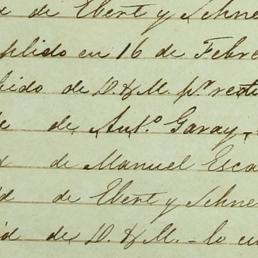 de Ebert y Schne
plido en 16 de Febre
bido de D. & M. pr. resti
de Anto. Garay,
d de Manuel Esca
id de Ebert y Schne
id de D. & M. - lo cu